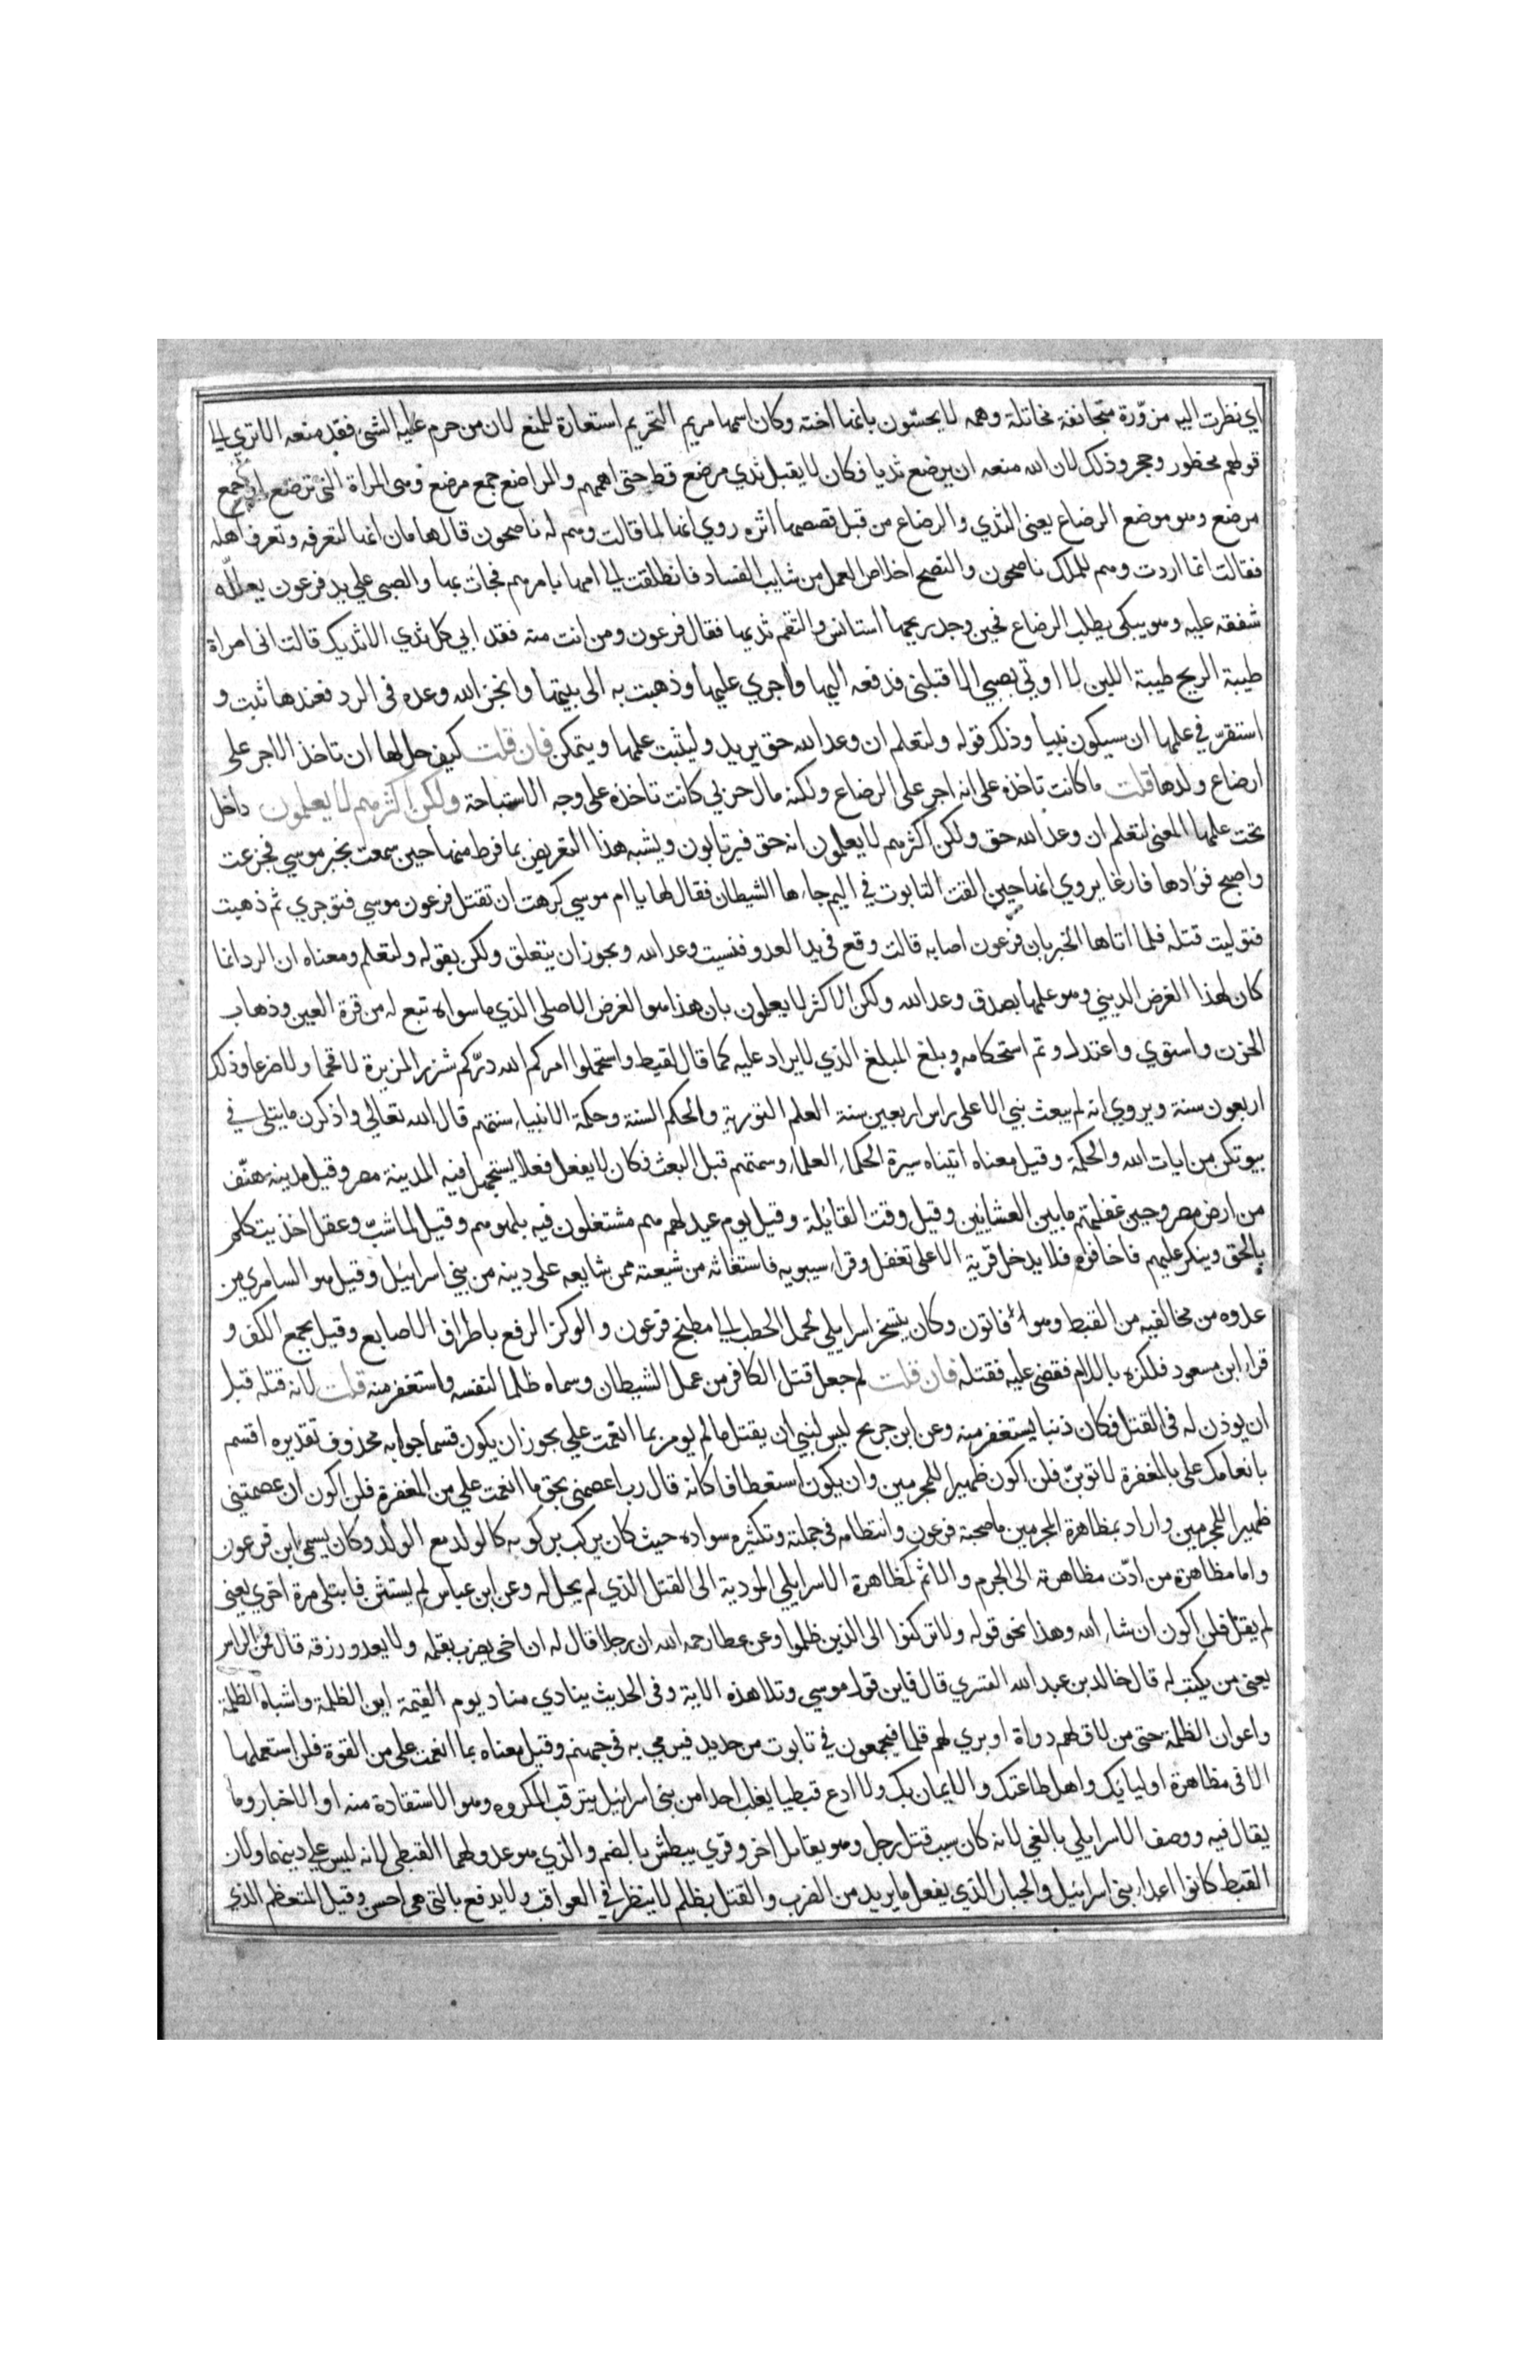 اي نظرت اليه مزوّرة متجانفة مخاتلة وهم لا يحسّون بانها اخته وكان اسمها مريم التحريم استعارة للمنع لان من حرم عليه الشي فقد منعه الا تري الي
قولهم محظور وحجر وذلك لان الله منعه ان يرضع ثديا فكان لا يقبل ثدي مرضع قط حتي اهمهم والمراضع جمع مرضع وهي المراة التي ترضع او جمع
مرضع وهو موضع الرضاع يعني الثدي والرضاع من قبل قصصها اثره روي انها لما قالت وهم له ناصحون قال هامان انها لتعرفه وتعرف اهله
فقالت انما اردت وهم للملك ناصحون والنصح اخلاص العمل من شايب الفساد فانطلقت الي امها بامرهم فجات بها والصبي علي يد فرعون يعلله
شفقه عليه وهو يبكي يطلب الرضاع فحين وجد ريحها استانس والتقم ثديها فقال فرعون ومن انت منه فقد ابي كل ثدي الا ثديك قالت اني امراة
طيبة الريح طيبة اللبن لا اوتي بصبي الا قبلني فدفعه اليها واجري عليها وذهبت به الي بيتها وانجز الله وعده في الرد فعندها ثبت و
استقرّ في علمها ان سيكون نبيا وذلك قوله ولتعلم ان وعد الله حق يريد وليثبت علمها ويتمكن فان قلت كيف حل لها ان تاخذ الاجر علي
ارضاع ولدها قلت ما كانت تاخذه علي انه اجر علي الرضاع ولكنه مال حربي كانت تاخذه علي وجه الاستباحة ولكن اكثرهم لا يعلمون داخل
تحت علمها المعني لتعلم ان وعد الله حق ولكن اكثرهم لا يعلمون انه حق فيرتابون ويشبه هذا التعريض بما فرط منها حين سمعت بخبر موسي فجزعت
واصبح فؤادها فارغا يروي انها حين القت التابوت في اليم جاءها الشيطان فقال لها يا ام موسي كرهت ان تقتل فرعون موسي فتوجري ثم ذهبت
فتوليت قتله فلما اتاها الخبر بان فرعون اصابه قالت وقع في يد العدو فنسيت وعد الله ويجوز ان يتعلق ولكن بقوله ولتعلم ومعناه ان الرد انما
كان لهذا الغرض الديني وهو علمها بصدق وعد الله ولكن الاكثر لا يعلمون بان هذا هو الغرض الاصلي الذي ما سواه تبع له من قرة العين وذهاب
الحزن واستوي واعتدل وتم استحكامه وبلغ المبلغ الذي لا يراد عليه كما قال لقيط واستحملوا امركم لله درّكم شزر المزيرة لا قحما ولا ضرعا وذلك
اربعون سنة ويروي انه لم يبعث نبي الا علي راس اربعين سنة العلم التورية والحكم السنة وحكمة الانبياء سنتهم قال الله تعالي واذكرن ما يتلي في
بيوتكن من ايات الله والحكمة وقيل معناه اتيناه سيرة الحكماء العلماء وسمتهم قبل البعث فكان لا يفعل فعلا يستجهل فيه المدينة مصر وقيل مدينة منف
من ارض مصر وحين غفلتهم ما بين العشائين وقيل وقت القائلة وقيل يوم عيد لهم هم مشتغلون فيه بلهوهم وقيل لما شبّ وعقل اخذ يتكلم
بالحق وينكر عليهم فاخافوه فلا يدخل قرية الا علي تغفل وقراء سيبويه فاستغاثه من شيعته ممن شايعه علي دينه من بني اسرائيل وقيل هو السامري من
عدوه من مخالفيه من القبط وهو فاتون وكان يتسخر اسرايلي لحمل الحطب الي مطبخ فرعون والوكز الرفع باطراف الاصابع وقيل بجمع الكف و
قراء ابن مسعود فلكزه باللام فقضي عليه فقتله فان قلت لم جعل قتل الكافر من عمل الشيطان وسماه ظلما لنفسه واستغفر منه قلت لانه قتله قبل
ان يوذن له في القتل فكان ذنبا يستغفر منه وعن ابن جريج ليس لنبي ان يقتل ما لم يومر بما انعمت علي يجوز ان يكون قسما جوابه محذوف تقديره اقسم
بانعامك علي بالمغفرة لاتوبنّ فلن اكون ظهيرا للمجرمين وان يكون استعطافا كانه قال رب اعصمني بحق ما انعمت علي من المغفرة فلن اكون ان عصمتني
ظهيرا للمجرمين واراد بمظاهرة المجرمين ما صحبة فرعون وانتظامه في جملته وتكثيره سواده حيث كان يركب بركوبه كالولد مع الولد وكان يسمي ابن فرعون
واما مظاهرة من ادّت مظاهرته الي الجرم والاثم كمظاهرة الاسرايلي المودية الي القتل الذي لم يحل له وعن ابن عباس لم يستثن فابتلي مرة اخري يعني
لم يقل فلن اكون ان شاء الله وهذا نحو قوله ولا تركنوا الي الذين ظلموا وعن عطا رحمه الله ان رجلا قال له ان اخي يضرب بقلمه ولا يعدو رزقه قال فمن الراس
يعني من يكتب له قال خالد بن عبد الله القسري قال فاين قول موسي وتلا هذه الاية وفي الحديث ينادي مناد يوم القيمة اين الظلمة واشباه الظلمة
واعوان الظلمة حتي من لاق لهم دواة او بري لهم قلما فيجمعون في تابوت من حديد فيرمي به في جهنم وقيل معناه بما انعمت علي من القوة فلن استعملها
الا في مظاهرة اوليايك واهل طاعتك والايمان بك ولا ادع قبطيا يغلب احدا من بني اسرائيل يترقب المكروه وهو الاستقادة منه او الاخبار وما
يقال فيه ووصف الاسرايلي بالغي لانه كان سبب قتل رجل وهو يقاتل اخر وقري يبطش بالضم والذي هو عدو لهما القبطي لانه ليس علي دينهما ولان
القبط كانوا اعداء بني اسرائيل والجبار الذي يفعل ما يريد من الضرب والقتل بظلم لا ينظر في العواقب ولا يدفع بالتي هي احسن وقيل المتعظم الذي